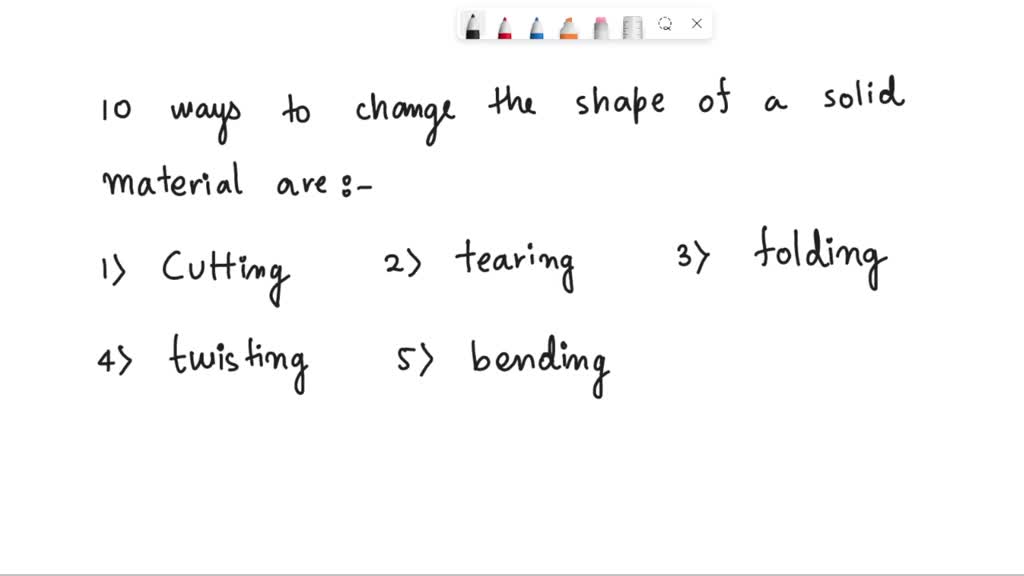 10 ways to change the shape of a solid
material are :-
1) Cutting 2) tearing 3) folding
4) twisting 5) bending